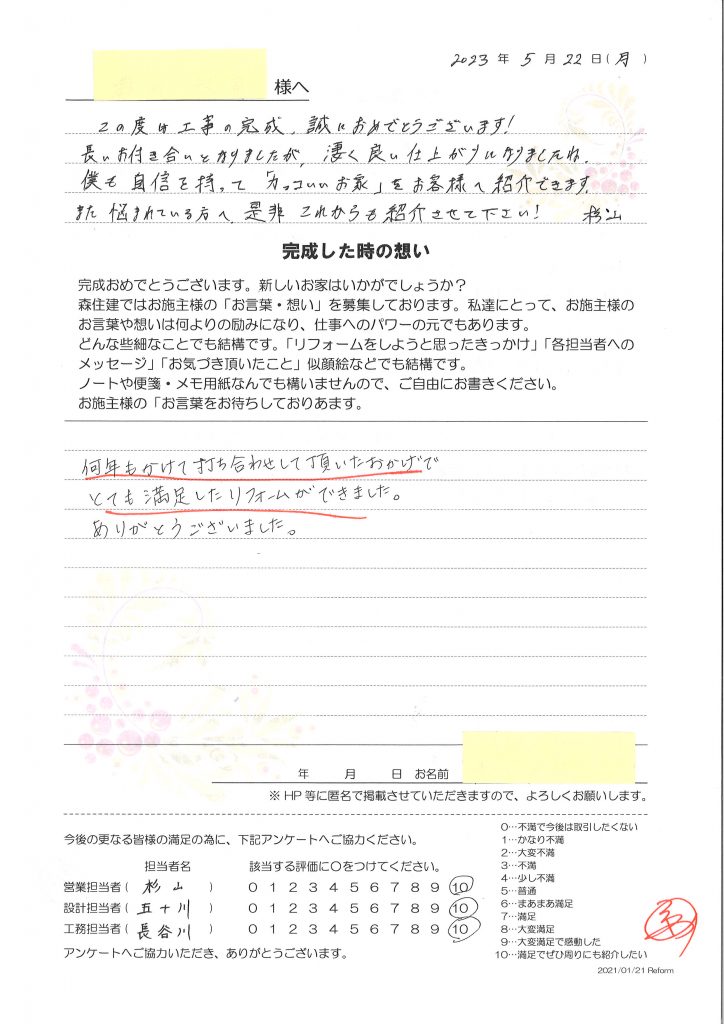 2023 年 5 月 22 日(月)
様へ
この度は工事の完成、誠におめでとうございます!
長いお付き合いとなりましたが、凄く良い仕上がりになりましたね。
僕も自信を持って「カッコいいお家」をお客様へ紹介できます。
また悩まれている方へ、是非これからも紹介させて下さい! 杉山
完成した時の想い
完成おめでとうございます。新しいお家はいかがでしょうか?
森住建ではお施主様の「お言葉・想い」を募集しております。私達にとって、お施主様の
お言葉や想いは何よりの励みになり、仕事へのパワーの元でもあります。
どんな些細なことでも結構です。「リフォームをしようと思ったきっかけ」「各担当者への
メッセージ」「お気づき頂いたこと」似顔絵などでも結構です。
ノートや便箋・メモ用紙なんでも構いませんので、ご自由にお書きください。
お施主様の「お言葉をお待ちしておりあます。
何年もかけて打ち合わせして頂いたおかげで
とても満足したリフォームができました。
ありがとうございました。
年 月 日 お名前
※ HP 等に匿名で掲載させていただきますので、よろしくお願いします。
今後の更なる皆様の満足の為に、下記アンケートへご協力ください。
担当者名 該当する評価に○をつけてください。
営業担当者( 杉山 ) 0 1 2 3 4 5 6 7 8 9 10
設計担当者( 五十川 ) 0 1 2 3 4 5 6 7 8 9 10
工務担当者( 長谷川 ) 0 1 2 3 4 5 6 7 8 9 10
アンケートへご協力いただき、ありがとうございます。
0…不満で今後は取引したくない
1…かなり不満
2…大変不満
3…不満
4…少し不満
5…普通
6…まあまあ満足
7…満足
8…大変満足
9…大変満足で感動した
10…満足でぜひ周りにも紹介したい
2021/01/21 Reform